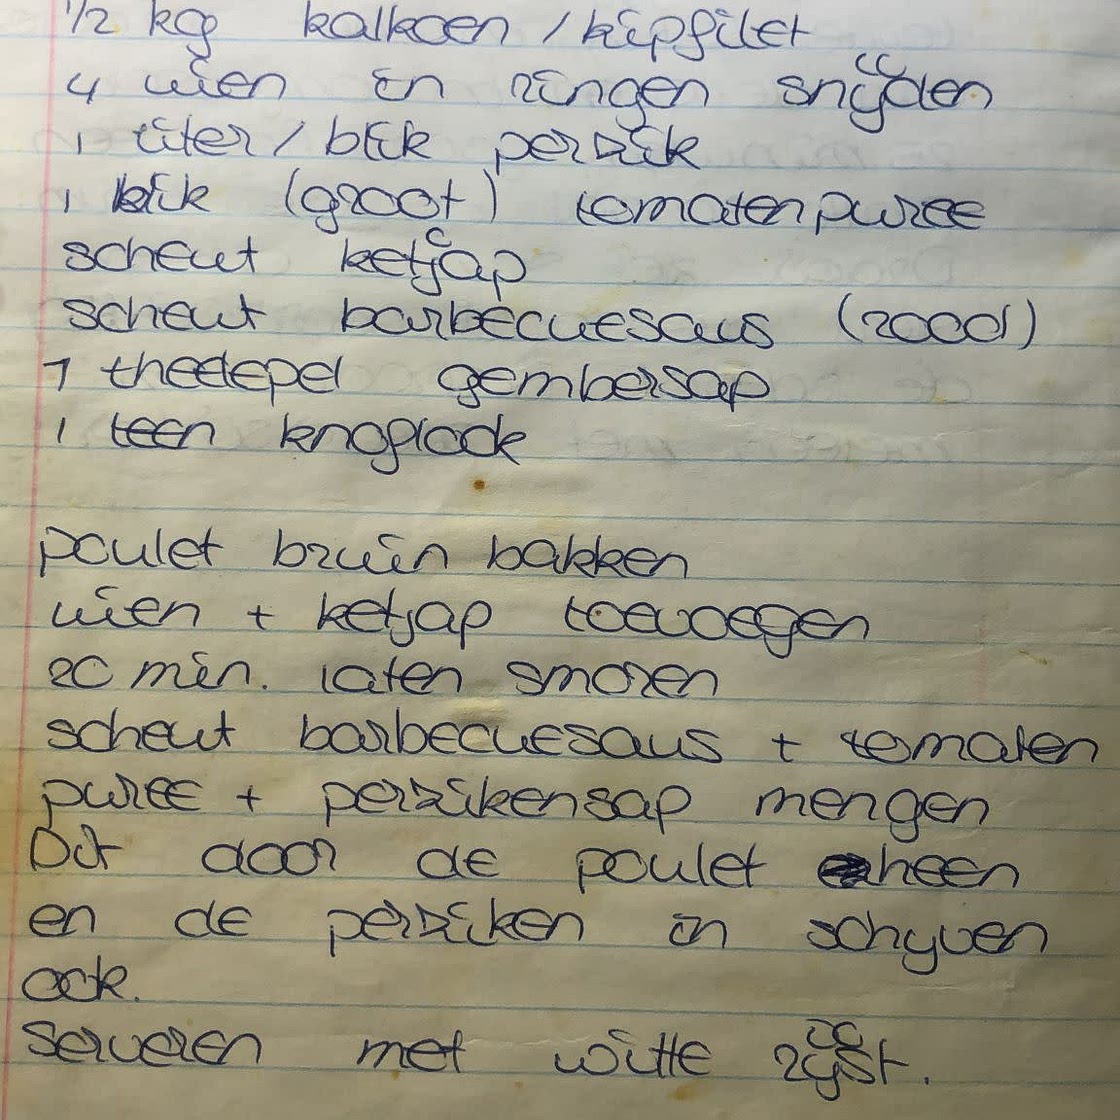 1/2 kg kalkoen / kipfilet
4 uien in ringen snijden
1 liter / blik perzik
1 blik (groot) tomatenpuree
scheut ketjap
scheut barbecuesaus (rood)
1 theelepel gembersap
1 teen knoflook
poulet bruin bakken
uien + ketjap toevoegen
20 min. laten smoren
scheut barbecuesaus + tomaten
puree + perzikensap mengen
Dit door de poulet heen
en de perziken in schyven
ook.
Serveren met witte rijst.